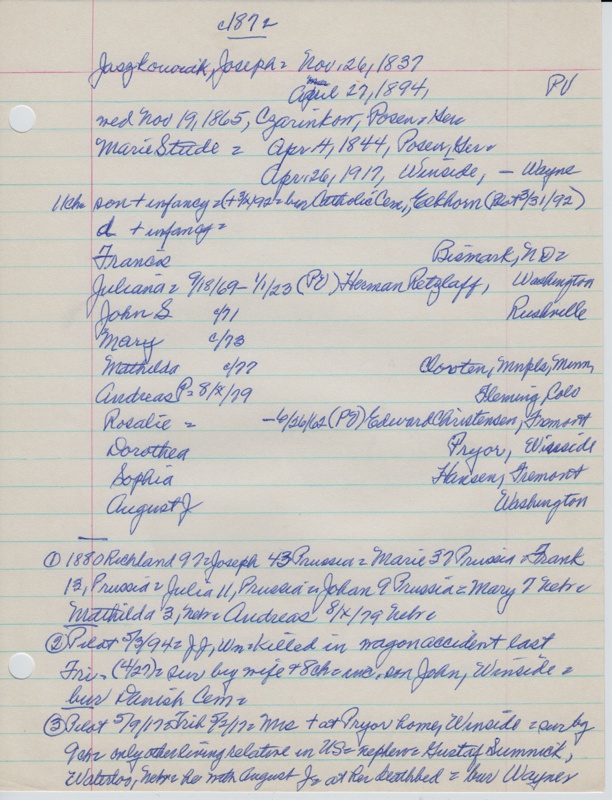 c1872
Jaszkowiak, Joseph = Nov. 26, 1837
April 27, 1894, PV
wed Nov 19, 1865, Czarinkow, Posen, Ger =
Marie Stude = Apr 4, 1844, Posen, Ger =
Apr. 26, 1917, Winside, - Wayne
11 ch = son + infancy = (+ 3/ /92 = bur Catholic Cem, Elkhorn ( 3/31/92)
d + infancy =
Francis Bismark, ND =
Juliana = 9/18/69 - 1/1/23 (PV) Herman Retzlaff, Washington
John S c/71 Rushville
Mary c/73
Mathilda c/77 Mnpls, Minn,
Andreas P = 8/x/79 Fleming, Colo
Rosalie = - 6/26/62 (PV) Edward Christensen, Fremont
Dorothea Pryor, Winside
Sophia Hansen, Fremont
August J Washington
① 1880 Richland 97 = Joseph 43 Prussia = Marie 37 Prussia = Frank
13, Prussia = Julia 11, Prussia = Johan 9 Prussia = Mary 7 Nebr =
Mathilda 3, Nebr = Andreas 8/x/79 Nebr =
② Pilot 5/3/94 = JJ, Wn = killed in wagon accident last
Fri = (4/27) = sur by wife + 8 ch = inc. son John, Winside =
bur Danish Cem =
③ Pilot 5/9/17 = Trib 5/2/17 = Mrs + at Pryor home, Winside = sur by
9 ch = only other living relative in US = nephew = Gustaf Sumnick,
Waterloo, Nebr = he with August J = at her deathbed = bur Wayne =